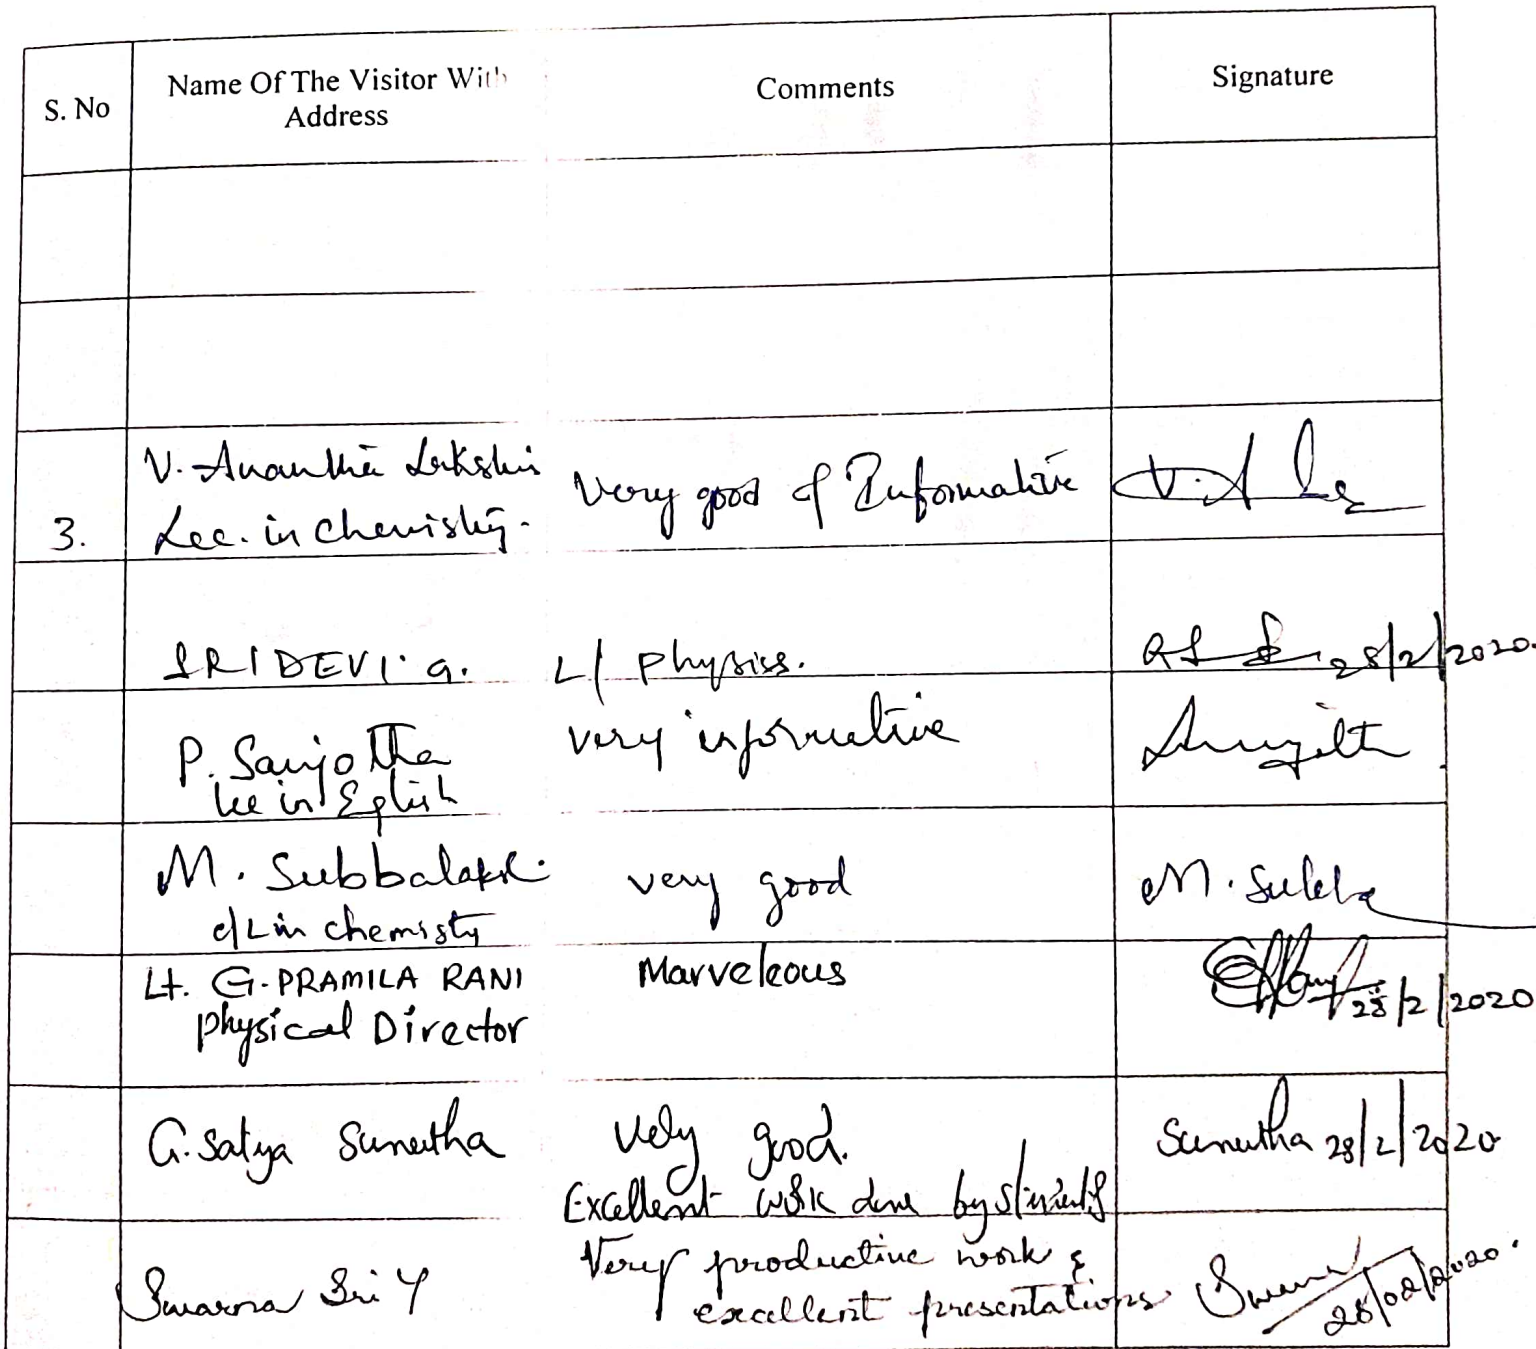 S. No
Name Of The Visitor With
Address
Comments
Signature
3.
V. Anantha Lakshmi
Lec. in Chemistry.
Very good & Informative
V. A
SRIDEVI. G.
L/ Physics.
28/2/2020.
P. Sanjotha
Lec in Eglish
very informative
M. Subbalaks
c/L in chemisty
very good
M. Subba
Lt. G. PRAMILA RANI
Physical Director
Marveleous
28/2/2020
G. Satya Suneetha
Very good.
Excellent work done by students
Suneetha 28/2/2020
Swarna Sri Y
Very productive work &
excellent presentations
28/02/2020.